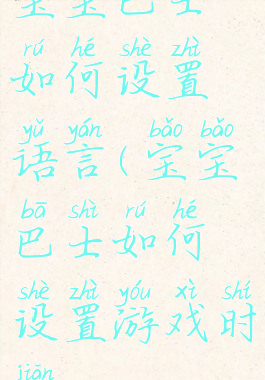 宝宝巴士
rú hé shè zhì
如何设置
yǔ yán bǎo bǎo
语言(宝宝
bā shì rú hé
巴士如何
shè zhì yóu xì shí
设置游戏时
jiān